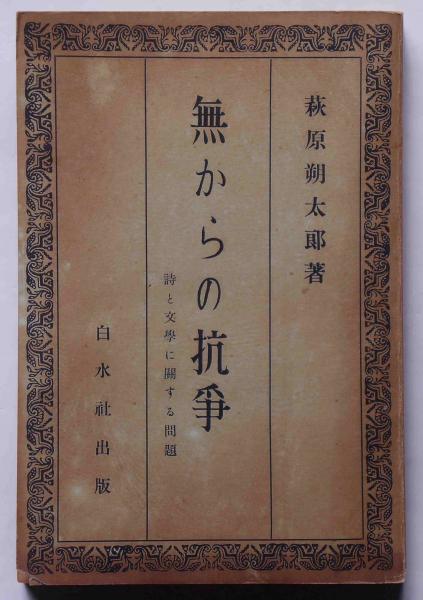 萩原朔太郎著
無からの抗爭
詩と文學に關する問題
白水社出版